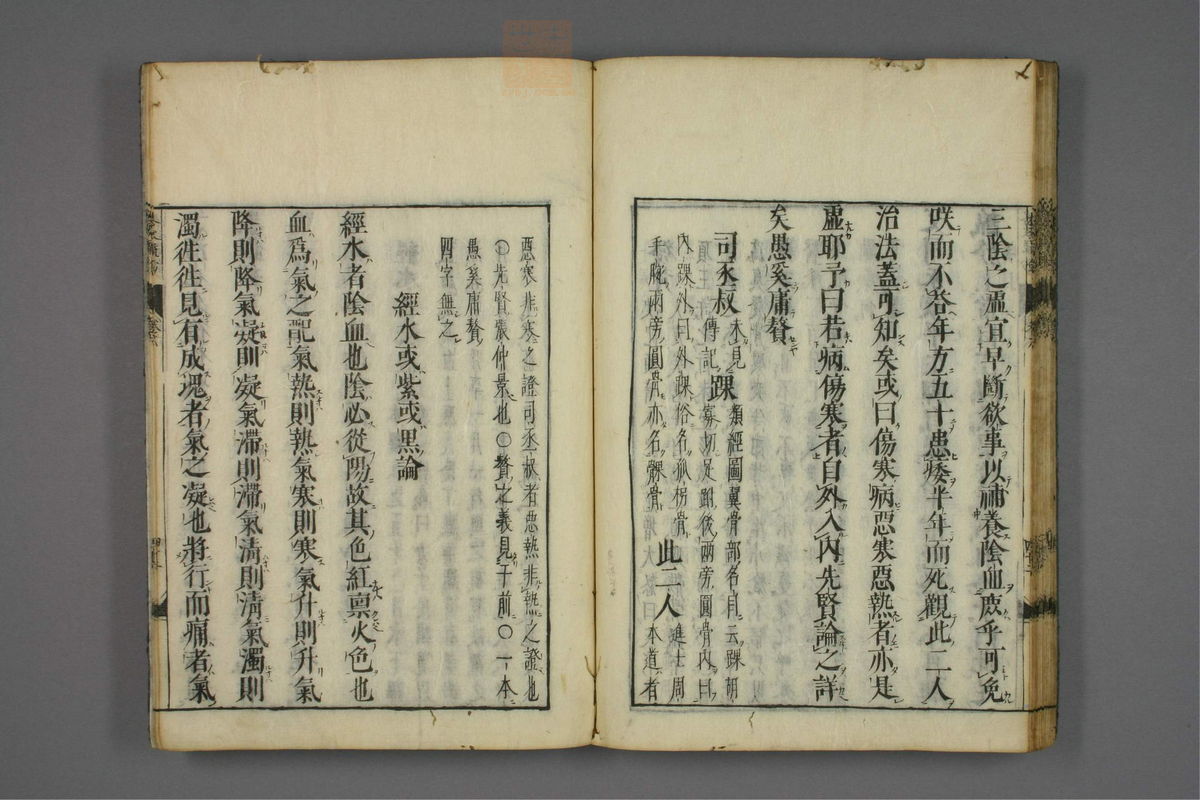 三陰之虛宜早斷欲事以補養陰血庶乎可免
咲而不答年方五十患痿半年而死觀此二人
治法蓋可知矣或曰傷寒病惡寒惡熱者亦是
虛耶予曰若病傷寒者自外入內先賢論之詳
矣愚奚庸贅
司丞叔
未見
傳記
踝
類經圖翼骨部名目云踝胡
寡切足跗後兩旁圓骨內曰
內踝外曰外踝俗名孤拐骨
手腕兩旁圓骨亦名髁骨
此二人
進士周
本道者
惡寒非寒之證司丞叔者惡熱非熱之證也
○先賢張仲景也○贅之義見于前○一本
愚奚庸贅
四字無之
經水或紫或黒論
經水者陰血也陰必從陽故其色紅稟火色也
血爲氣之配氣熱則熱氣寒則寒氣升則升氣
降則降氣凝則凝氣滯則滯氣清則清氣濁則
濁徃徃見有成塊者氣之凝也將行而痛者氣